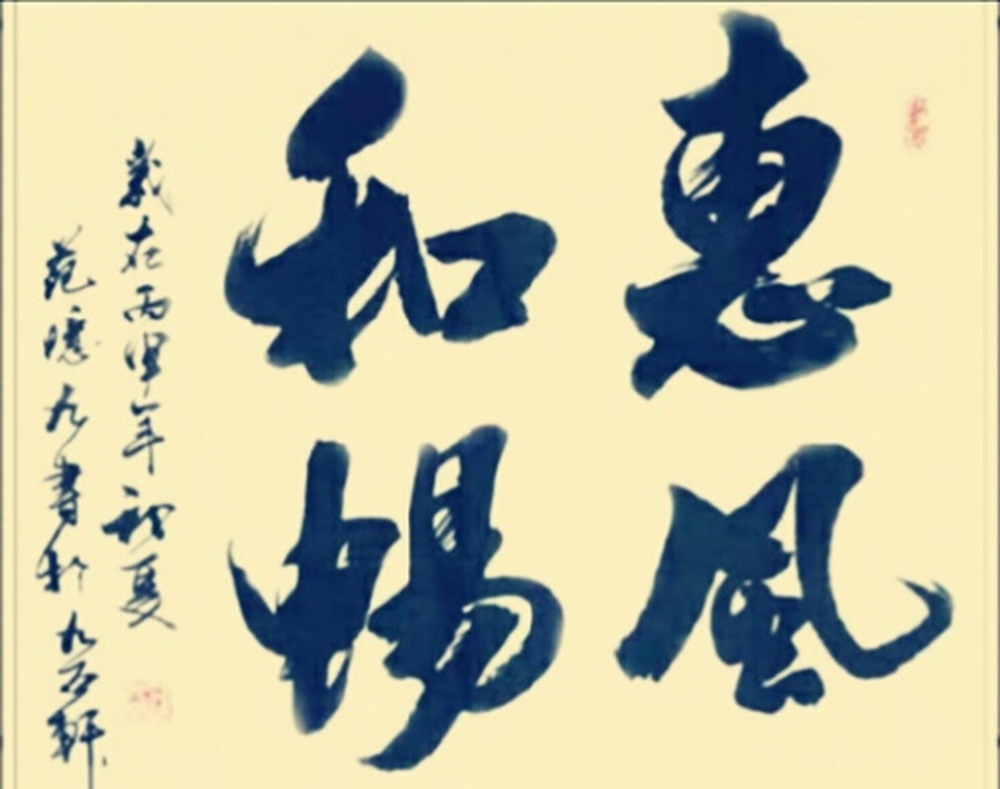 惠風
和暢
歲在丙申年初夏
范憶九書於九石軒